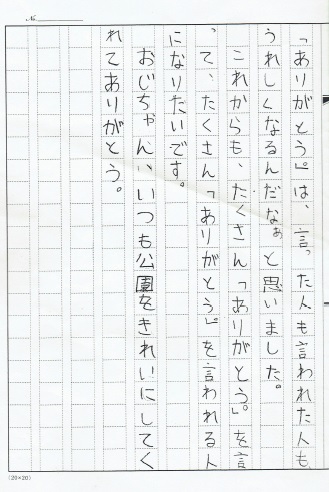 「ありがとう」は、言った人も言われた人も、
うれしくなるんだなぁと思いました。
これからも、たくさん「ありがとう。」を言
って、たくさん「ありがとう。」を言われる人
になりたいです。
おじちゃん、いつも公園をきれいにしてく
れてありがとう。
№
(20×20)